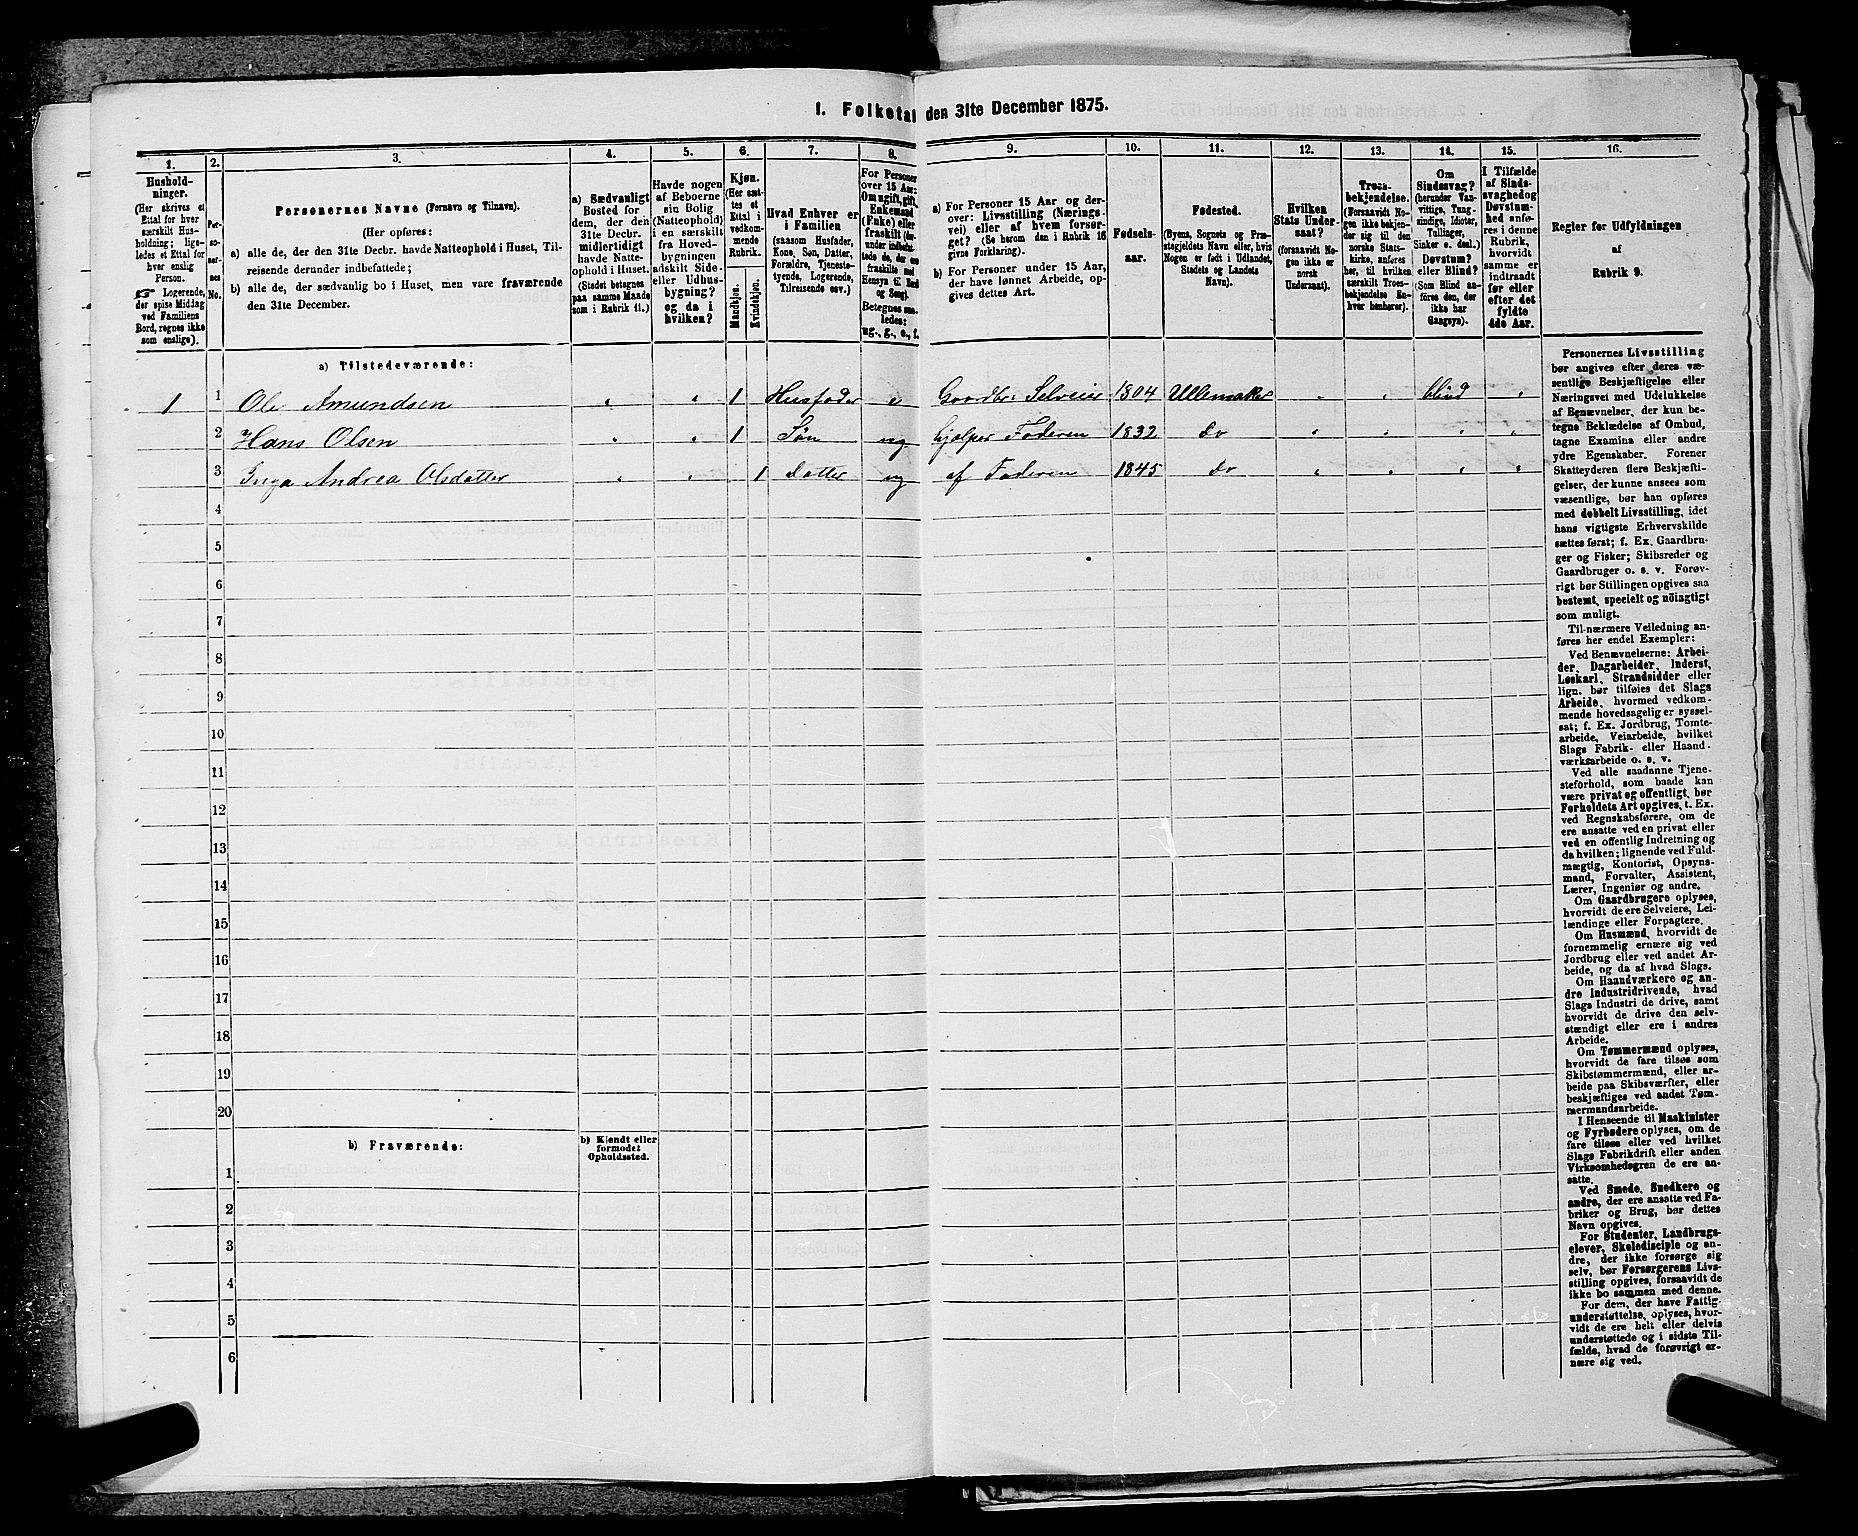 1. Folketal den 31te December 1875.
1.
Hushold-
ninger.
(Her skrives et
Ettal for hver
særskilt Hus-
holdning; lige-
ledes et Ettal for
hver enslig
Person.
☞ Logerende,
der spise Middag
ved Familiens
Bord, regnes ikke
som enslige).
2.
Per-
so-
ner-
nes
No.
3.
Personernes Navne (Fornavn og Tilnavn).
(Her opføres:
a) alle de, der den 31te Decbr. havde Natteophold i Huset, Til-
reisende derunder indbefattede;
b) alle de, der sædvanlig bo i Huset, men vare fraværende
den 31te December.
4.
a) Sædvanligt
Bosted for
dem, der den
31te Decbr.
midlertidigt
havde Natte-
ophold i Huset.
(Stedet betegnes
paa samme Maade
som i Rubrik 11.)
5.
Havde nogen
af Beboerne
sin Bolig
(Natteophold)
i en særskilt
fra Hoved-
bygningen
adskilt Side-
eller Udhus-
bygning?
og da i
hvilken?
6.
Kjøn.
(Her sæt-
tes et
Ettal i
vedkom-
mende
Rubrik.
Mandkjøn.
Kvindekjøn.
7.
Hvad Enhver er
i Familien
(saasom Husfader,
Kone, Søn, Datter,
Forældre, Tjeneste-
tyende, Logerende,
Tilreisende osv.)
8.
For Personer
over 15 Aar:
Om ugift, gift,
Enkemand
(Enke) eller
fraskilt
Betegnes saa-
ledes:
ug., g., e., f.
9.
a) For Personer 15 Aar og der-
over: Livsstilling (Nærings-
vei) eller af hvem forsør-
get? (Se herom den i Rubrik 16
givne Forklaring).
b) For Personer under 15 Aar,
der have lønnet Arbeide, op-
gives dettes Art.
10.
Fødsels-
aar.
11.
Fødested.
(Byens, Sognets og Præ-
stegjeldets Navn eller, hvis
Nogen er født i Udlandet,
Stedets og Landets
Navn).
12.
Hvilken
Stats Under-
saat?
(forsaavidt No-
gen ikke er
norsk
Undersaat).
13.
Troes-
bekjendelse.
(Forsaavidt No-
gen ikke bekjen-
der sig til den
norske Stats-
kirke, anføres
her, til hvilken
særskilt Troes-
bekjendelse En-
hver henhører).
14.
Om
Sindssvag?
(herunder Van-
vittige, Tung-
sindige, Idioter,
Tullinger,
Sinker o. desl.)
Døvstum?
eller Blind?
(Som Blind an-
føres den, der
ikke har
Gangsyn).
15.
I Tilfælde
af Sinds-
svaghed og
Døvstum-
hed anfø-
res i denne
Rubrik,
hvorvidt
samme er
indtraadt
før eller
efter det
fyldte
4de Aar.
16.
Regler for Udfyldningen
af
Rubrik 9.
a) Tilstedeværende:
1 1 Ole Amundsen " " 1 Husfader e Gaardbr: Selveier 1804 Ullensaker " " blind "
2 Hans Olsen " " 1 Søn ug hjælper Faderen 1832 do " " " "
3 Inga Andrea Olsdatter " " 1 datter ug af Faderen 1845 do " " " "
4
5
6
7
8
9
10
11
12
13
14
15
16
17
18
19
20
b) Fraværende:
b) Kjendt eller
formodet
Opholdssted.
1
2
3
4
5
6
Personernes Livsstilling
bør angives efter deres væ-
sentlige Beskjæftigelse eller
Næringsvei med Udelukkelse
af Benævnelser, der kun be-
tegne Beklædelse af Ombud,
tagne Examina eller andre
ydre Egenskaber. Forener
Skatteyderen flere Beskjæfti-
gelser, der kunne ansees som
væsentlige, bør han opføres
med dobbelt Livsstilling, idet
hans vigtigste Erhvervskilde
sættes først; f. Ex. Gaardbru-
ger og Fisker; Skibsreder og
Gaardbruger o. s. v. Forøv-
rigt bør Stillingen opgives saa
bestemt, specielt og nöiagtigt
som muligt.
Til nærmere Veiledning an-
føres her endel Exempler:
Ved Benævnelserne: Arbei-
der, Dagarbeider, Inderst,
Løskarl, Strandsidder eller
lign. bør tilføies det Slags
Arbeide, hvormed vedkom-
mende hovedsagelig er syssel-
sat; f. Ex. Jordbrug, Tomte-
arbeide, Veiarbeide, hvilket
Slags Fabrik- eller Haand-
værksarbeide o. s. v.
Ved alle saadanne Tjene-
steforhold, som baade kan
være privat og offentligt, bør
Forholdets Art opgives, t. Ex.
ved Regnskabsførere, om de
ere ansatte ved en privat eller
ved en offentlig Indretning og
da hvilken; lignende ved Fuld-
mægtig, Kontorist, Opsyns-
mand, Forvalter, Assistent,
Lærer, Ingeniør og andre.
Om Gaardbrugere oplyses,
hvorvidt de ere Selveiere, Lei-
lændinge eller Forpagtere.
Om Husmænd, hvorvidt de
fornemmelig ernære sig ved
Jordbrug eller ved andet Ar-
beide, og da af hvad Slags.
Om Haandværkere og an-
dre Industridrivende, hvad
Slags Industri de drive, samt
hvorvidt de drive den selv-
stændigt eller ere i andres
Arbeide.
Om Tømmermænd oplyses,
hvorvidt de fare tilsøs som
Skibstømmermænd, eller ar-
beide paa Skibsværfter, eller
beskjæftiges ved andet Tøm-
mermandsarbeide.
I Henseende til Maskinister
og Fyrbødere oplyses, om de
fare tilsøs eller ved hvilket
Slags Fabrikdrift eller anden
Virksomhedsgren de ere an-
satte.
Ved Smede, Snedkere og
andre, der ere ansatte ved Fa-
briker og Brug, bør dettes
Navn opgives.
For Studenter, Landbrugs-
elever, Skoledisciple og an-
dre, der ikke forsørge sig
selv, bør Forsørgerens Livs-
stilling opgives, forsaavidt de
ikke bo sammen med denne.
For dem, der have Fattig-
understøttelse, oplyses, hvor-
vidt de ere helt eller delvis
understøttede og i sidste Til-
fælde, hvad de forøvrigt er-
nære sig ved.